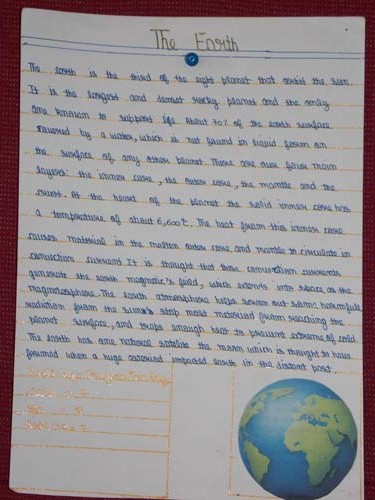 The Earth
The earth is the third of the eight planet that orbit the sun.
It is the largest and densest rocky planet and the only
one known to support life About 70% of the earth surface
covered by a water, which is not found in liquid form on
the surface of any other planet. There are over four main
layers: the inner core, the outer core, the mantle and the
crust. At the heart of the planet the solid inner core has
a temperature of about 6,600°C. The heat from this inner core
causes material in the molten outer core and mantle to circulate in
convection current It is thought that these convection currents
generate the earth magnetic's field, which extends into space as the
magnetosphere. The earth atmosphere helps screen out some harmful
radiation from the sun stop most material from reaching the
planet surface, and traps enough heat to prevent extreme of cold.
The earth has one natural satelite the moon which is thought to have
formed when a huge asteroid impacted earth in the distant past.